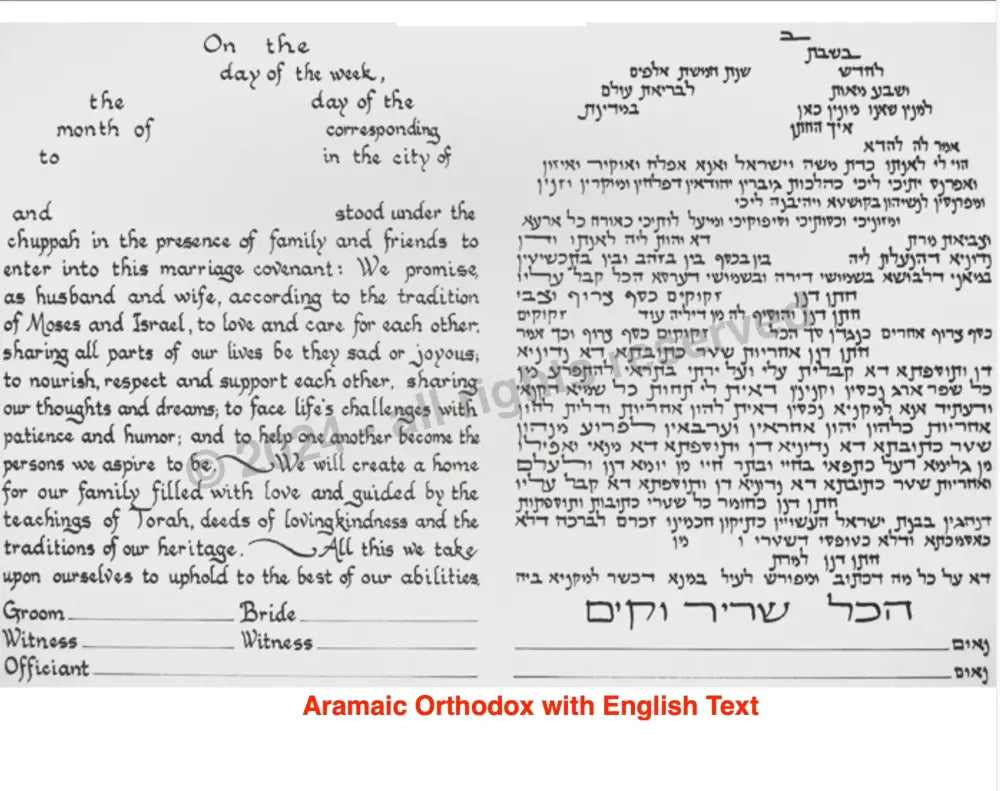 On the
day of the week,
the day of the
month of corresponding
to in the city of
and stood under the
chuppah in the presence of family and friends to
enter into this marriage covenant: We promise,
as husband and wife, according to the tradition
of Moses and Israel, to love and care for each other;
sharing all parts of our lives be they sad or joyous;
to nourish, respect and support each other, sharing
our thoughts and dreams; to face life's challenges with
patience and humor; and to help one another become the
persons we aspire to be. We will create a home
for our family filled with love and guided by the
teachings of Torah, deeds of lovingkindness and the
traditions of our heritage. All this we take
upon ourselves to uphold to the best of our abilities.
Groom Bride
Witness Witness
Officiant
ב
בשבת
לחדש שנת חמשת אלפים
ושבע מאות לבריאת עולם
למנין שאנו מונין כאן במדינת
איך החתן
אמר לה להדא
הוי לי לאנתו כדת משה וישראל ואנא אפלח ואוקיר ואיזון
ואפרנס יתיכי ליכי כהלכות גוברין יהודאין דפלחין ומוקרין וזנין
ומפרנסין לנשיהון בקושטא ויהיבנא ליכי
ומזוניכי וכסותיכי וסיפוקיכי ומיעל לותיכי כאורח כל ארעא
וצביאת מרת דא והות ליה לאנתו ודן
נדוניא דהנעלת ליה בין בכסף בין בזהב ובין בתכשיטין
במאני דלבושא בשמושי דירה ובשמושי דערסא הכל קבל עליו
חתן דנן זקוקים כסף צרוף וצבי
חתן דנן והוסיף לה מן דיליה עוד זקוקים
כסף צרוף אחרים כנגדן סך הכל זקוקים כסף צרוף וכך אמר
חתן דנן אחריות שטר כתובתא דא נדוניא
דן ותוספתא דא קבלית עלי ועל ירתי בתראי להתפרע מן
כל שפר ארג נכסין וקנינין דאית לי תחות כל שמיא דקנאי
ודעתיד אנא למקניא נכסין דאית להון אחריות ודלית להון
אחריות כלהון יהון אחראין וערבאין לפרוע מנהון
שטר כתובתא דא נדוניא דן ותוספתא דא מנאי ואפילו
מן גלימא דעל כתפאי בחיי ובתר חיי מן יומא דנן ולעלם
ואחריות שטר כתובתא דא נדוניא דן ותוספתא דא קבל עליו
חתן דנן כחומר כל שטרי כתובות ותוספתות
דנהגין בבנת ישראל העשויין כתיקון חכמינו זכרם לברכה דלא
כאסמכתא ודלא כטופסי דשטרי ו מן
חתן דנן למרת
דא על כל מה דכתוב ומפורש לעיל במנא דכשר למקניא ביה
הכל שריר וקים
נאום
נאום
© 2024 - all rights reserved
Aramaic Orthodox with English Text